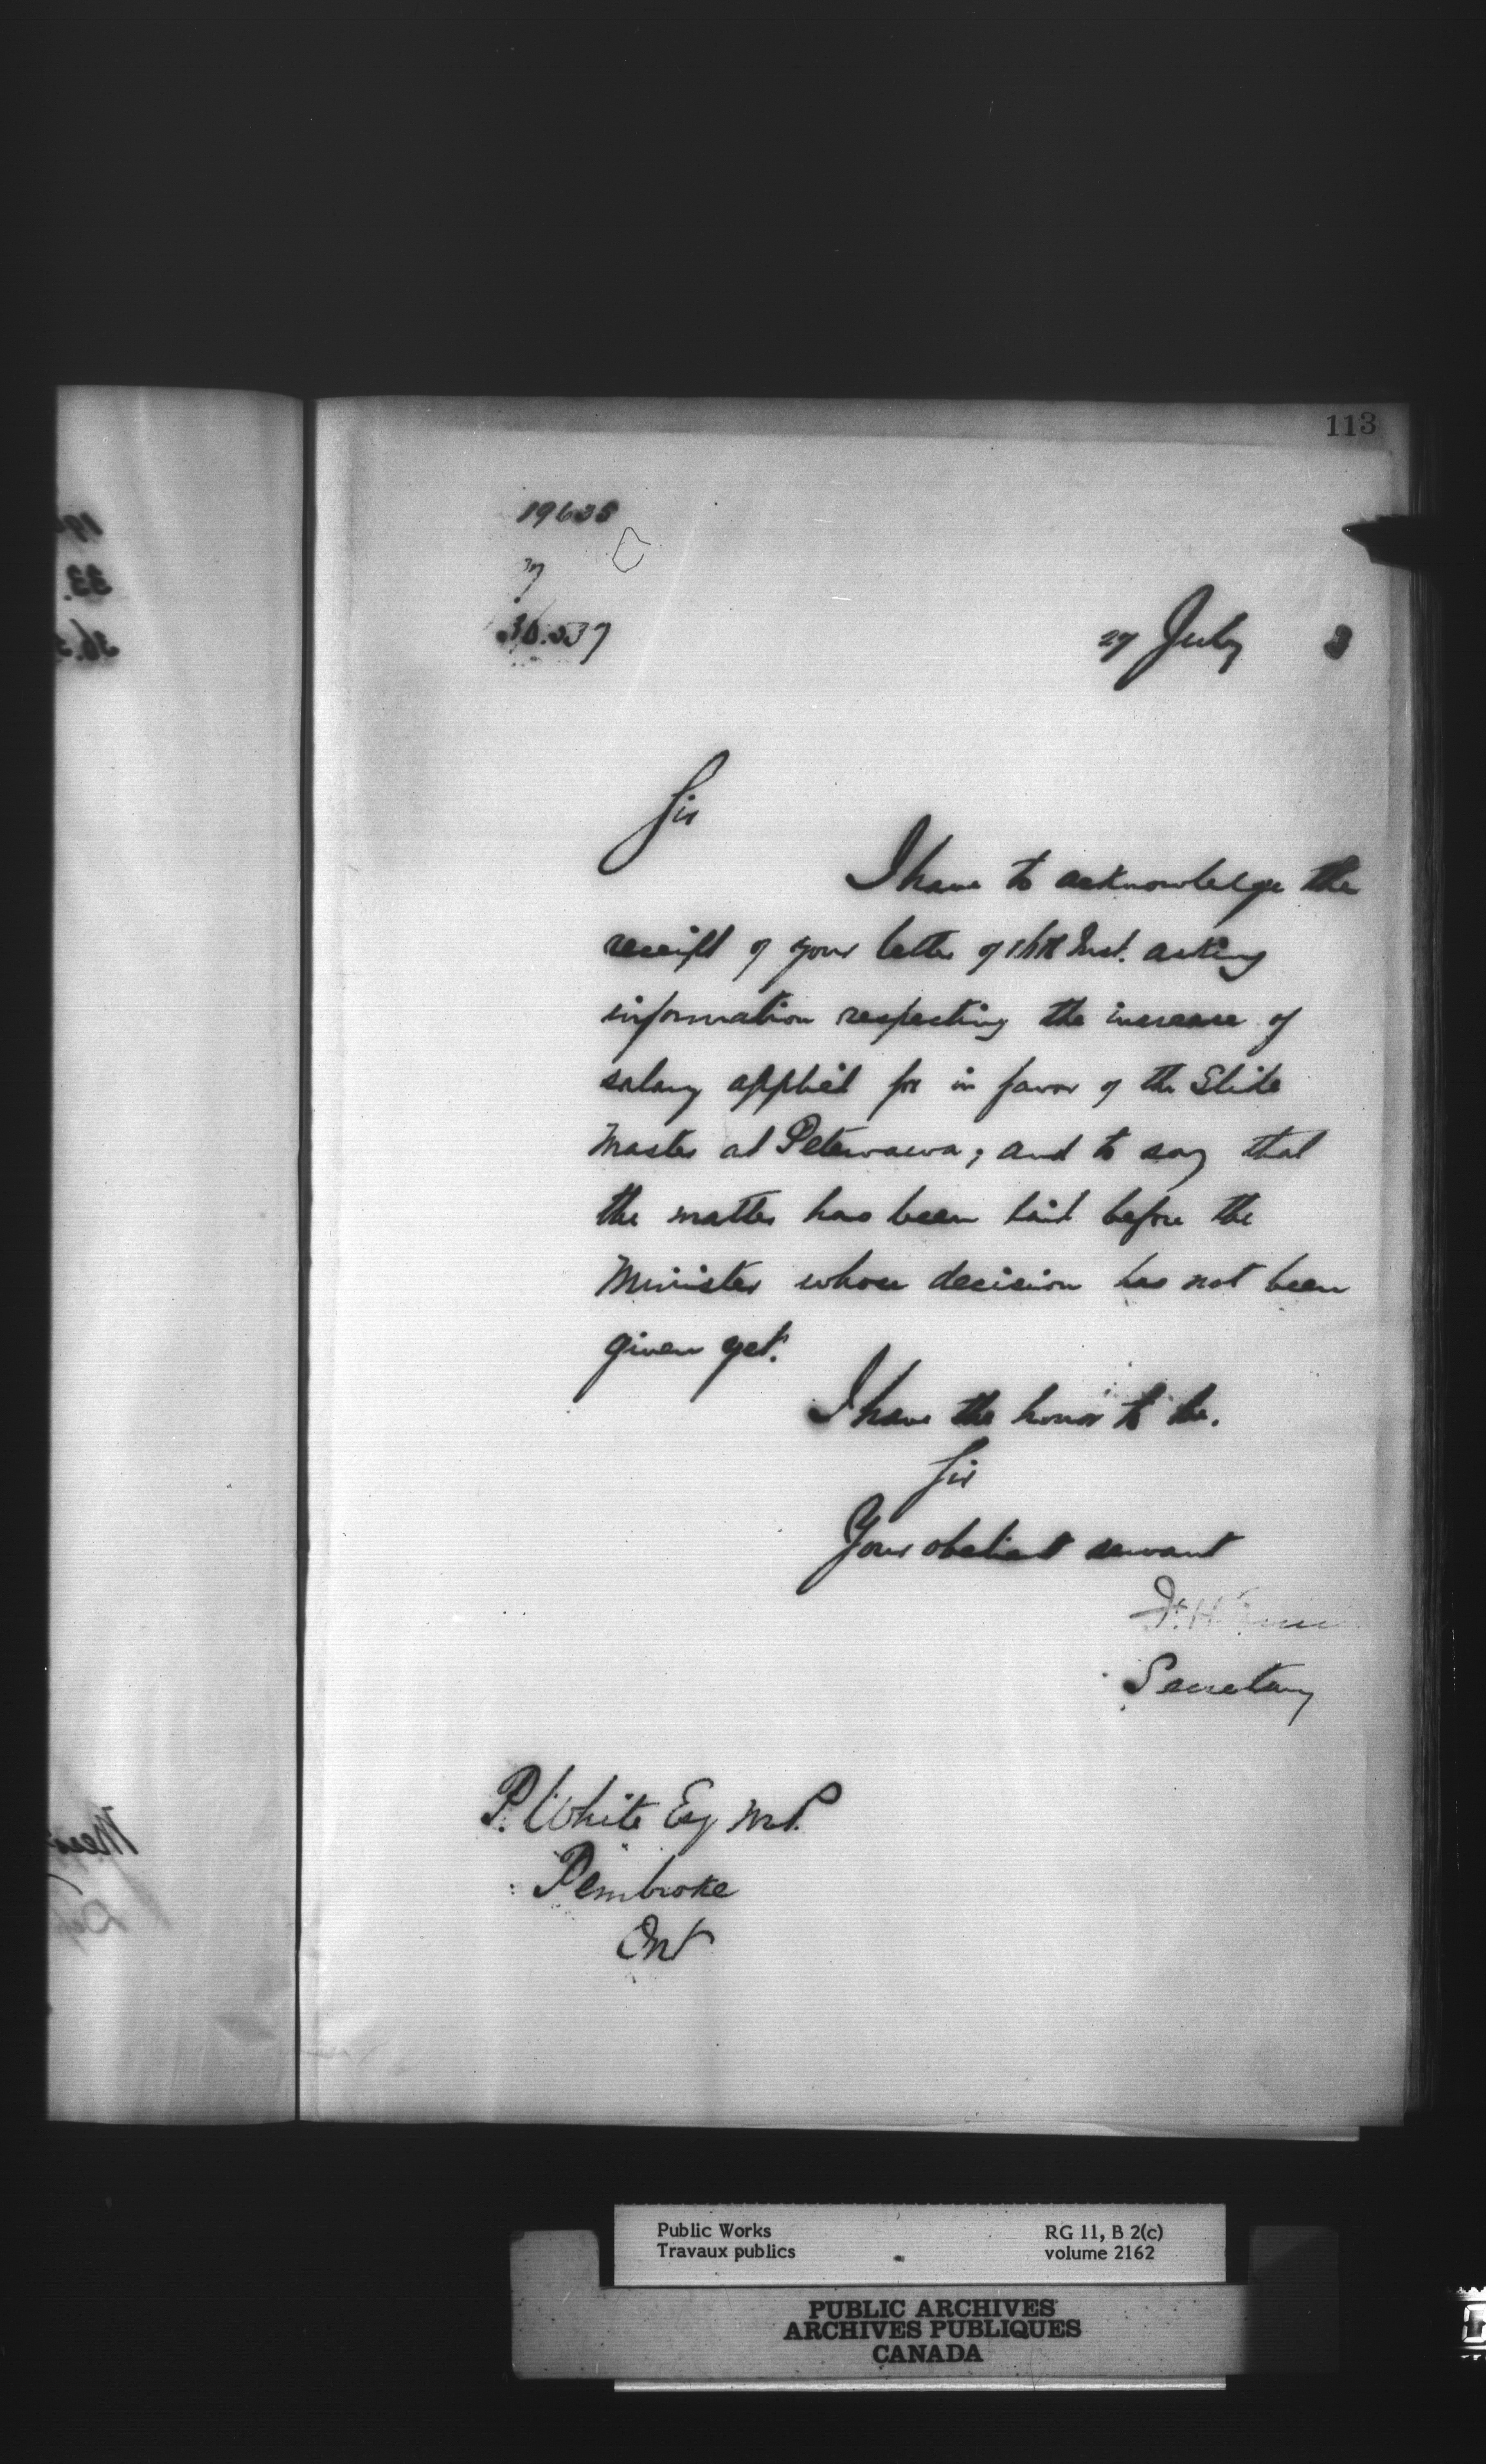 113
19635
37
36.537
27 July 3
Sir
I have to acknowledge the
receipt of your letter of 16th Inst. asking
information respecting the increase of
salary applied for in favor of the Slide
Master at Petewawa; and to say that
the matter has been laid before the
Minister whose decision has not been
given yet.
I have the honor to be.
Sir
Your obedient servant
F. H.
Secretary
P. White Esq M.P.
Pembroke
Ont
Public Works
Travaux publics
RG 11, B 2(c)
volume 2162
PUBLIC ARCHIVES
ARCHIVES PUBLIQUES
CANADA